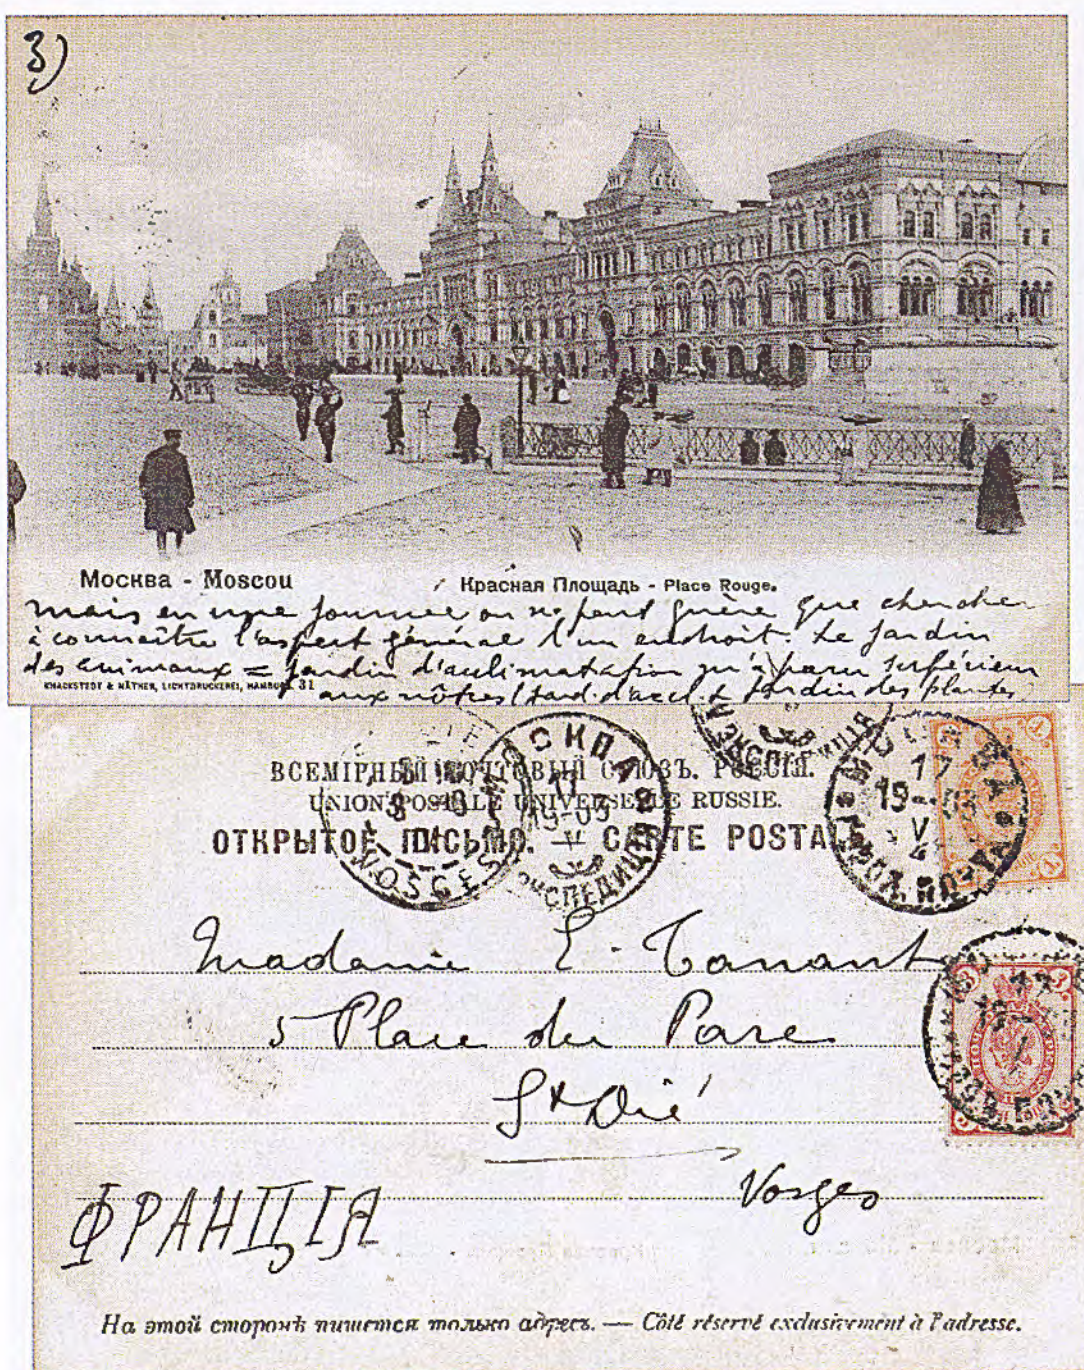 3)
Москва - Moscou
Красная Площадь - Place Rouge.
mais en une journée on ne peut guère que chercher
à connaître l'aspect général d'un endroit. Le Jardin
des animaux = Jardin d'acclimatation m'a paru supérieur
KNACKSTEDT & NÄTHER, LICHTDRUCKEREI, HAMBURG. 31
aux nôtres (Jard. d'accl. & Jardin des plantes
ВСЕМІРНЫЙ ПОЧТОВЫЙ СОЮЗЪ. РОССІЯ.
UNION POSTALE UNIVERSELLE RUSSIE.
ОТКРЫТОЕ ПИСЬМО. — CARTE POSTALE
МОСКВА
ЭКСПЕДИЦІЯ
VOSGES
Madame E. Tanant
5 Place du Parc
St Dié
Vosges
ФРАНЦІЯ
На этой сторонѣ пишется только адресъ. — Côté réservé exclusivement à l'adresse.